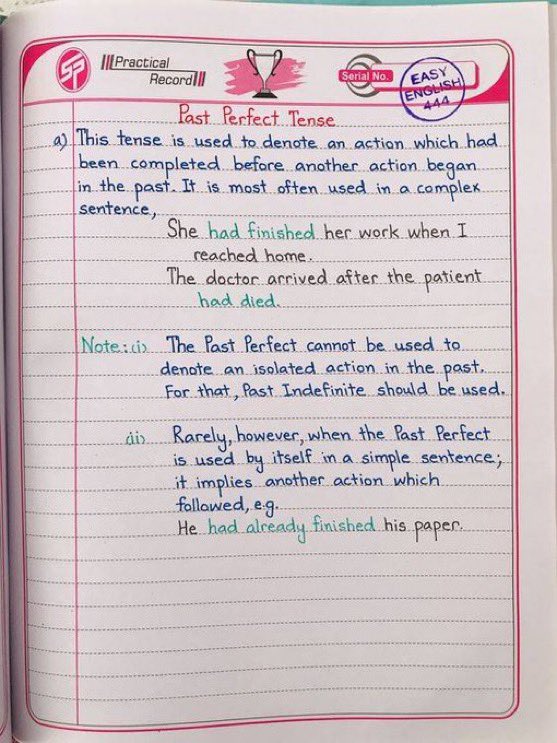 SP
Practical
Record
Serial No.
EASY
ENGLISH
444
Past Perfect Tense
a) This tense is used to denote an action which had
been completed before another action began
in the past. It is most often used in a complex
sentence,
She had finished her work when I
reached home.
The doctor arrived after the patient
had died.
Note: (i) The Past Perfect cannot be used to
denote an isolated action in the past.
For that, Past Indefinite should be used.
(ii) Rarely, however, when the Past Perfect
is used by itself in a simple sentence;
it implies another action which
followed, e.g.
He had already finished his paper.